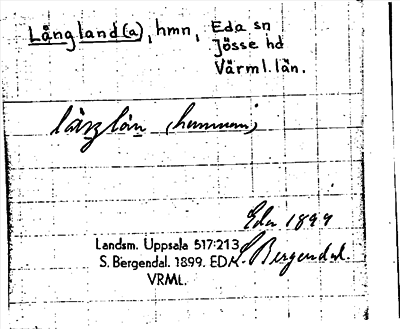 Långland(a), hmn, Eda sn
Jösse hd
Värml. län.
(hemman)
Eda 1899
S. Bergendal.
Landsm. Uppsala 517:213
S. Bergendal. 1899. EDA
VRML.